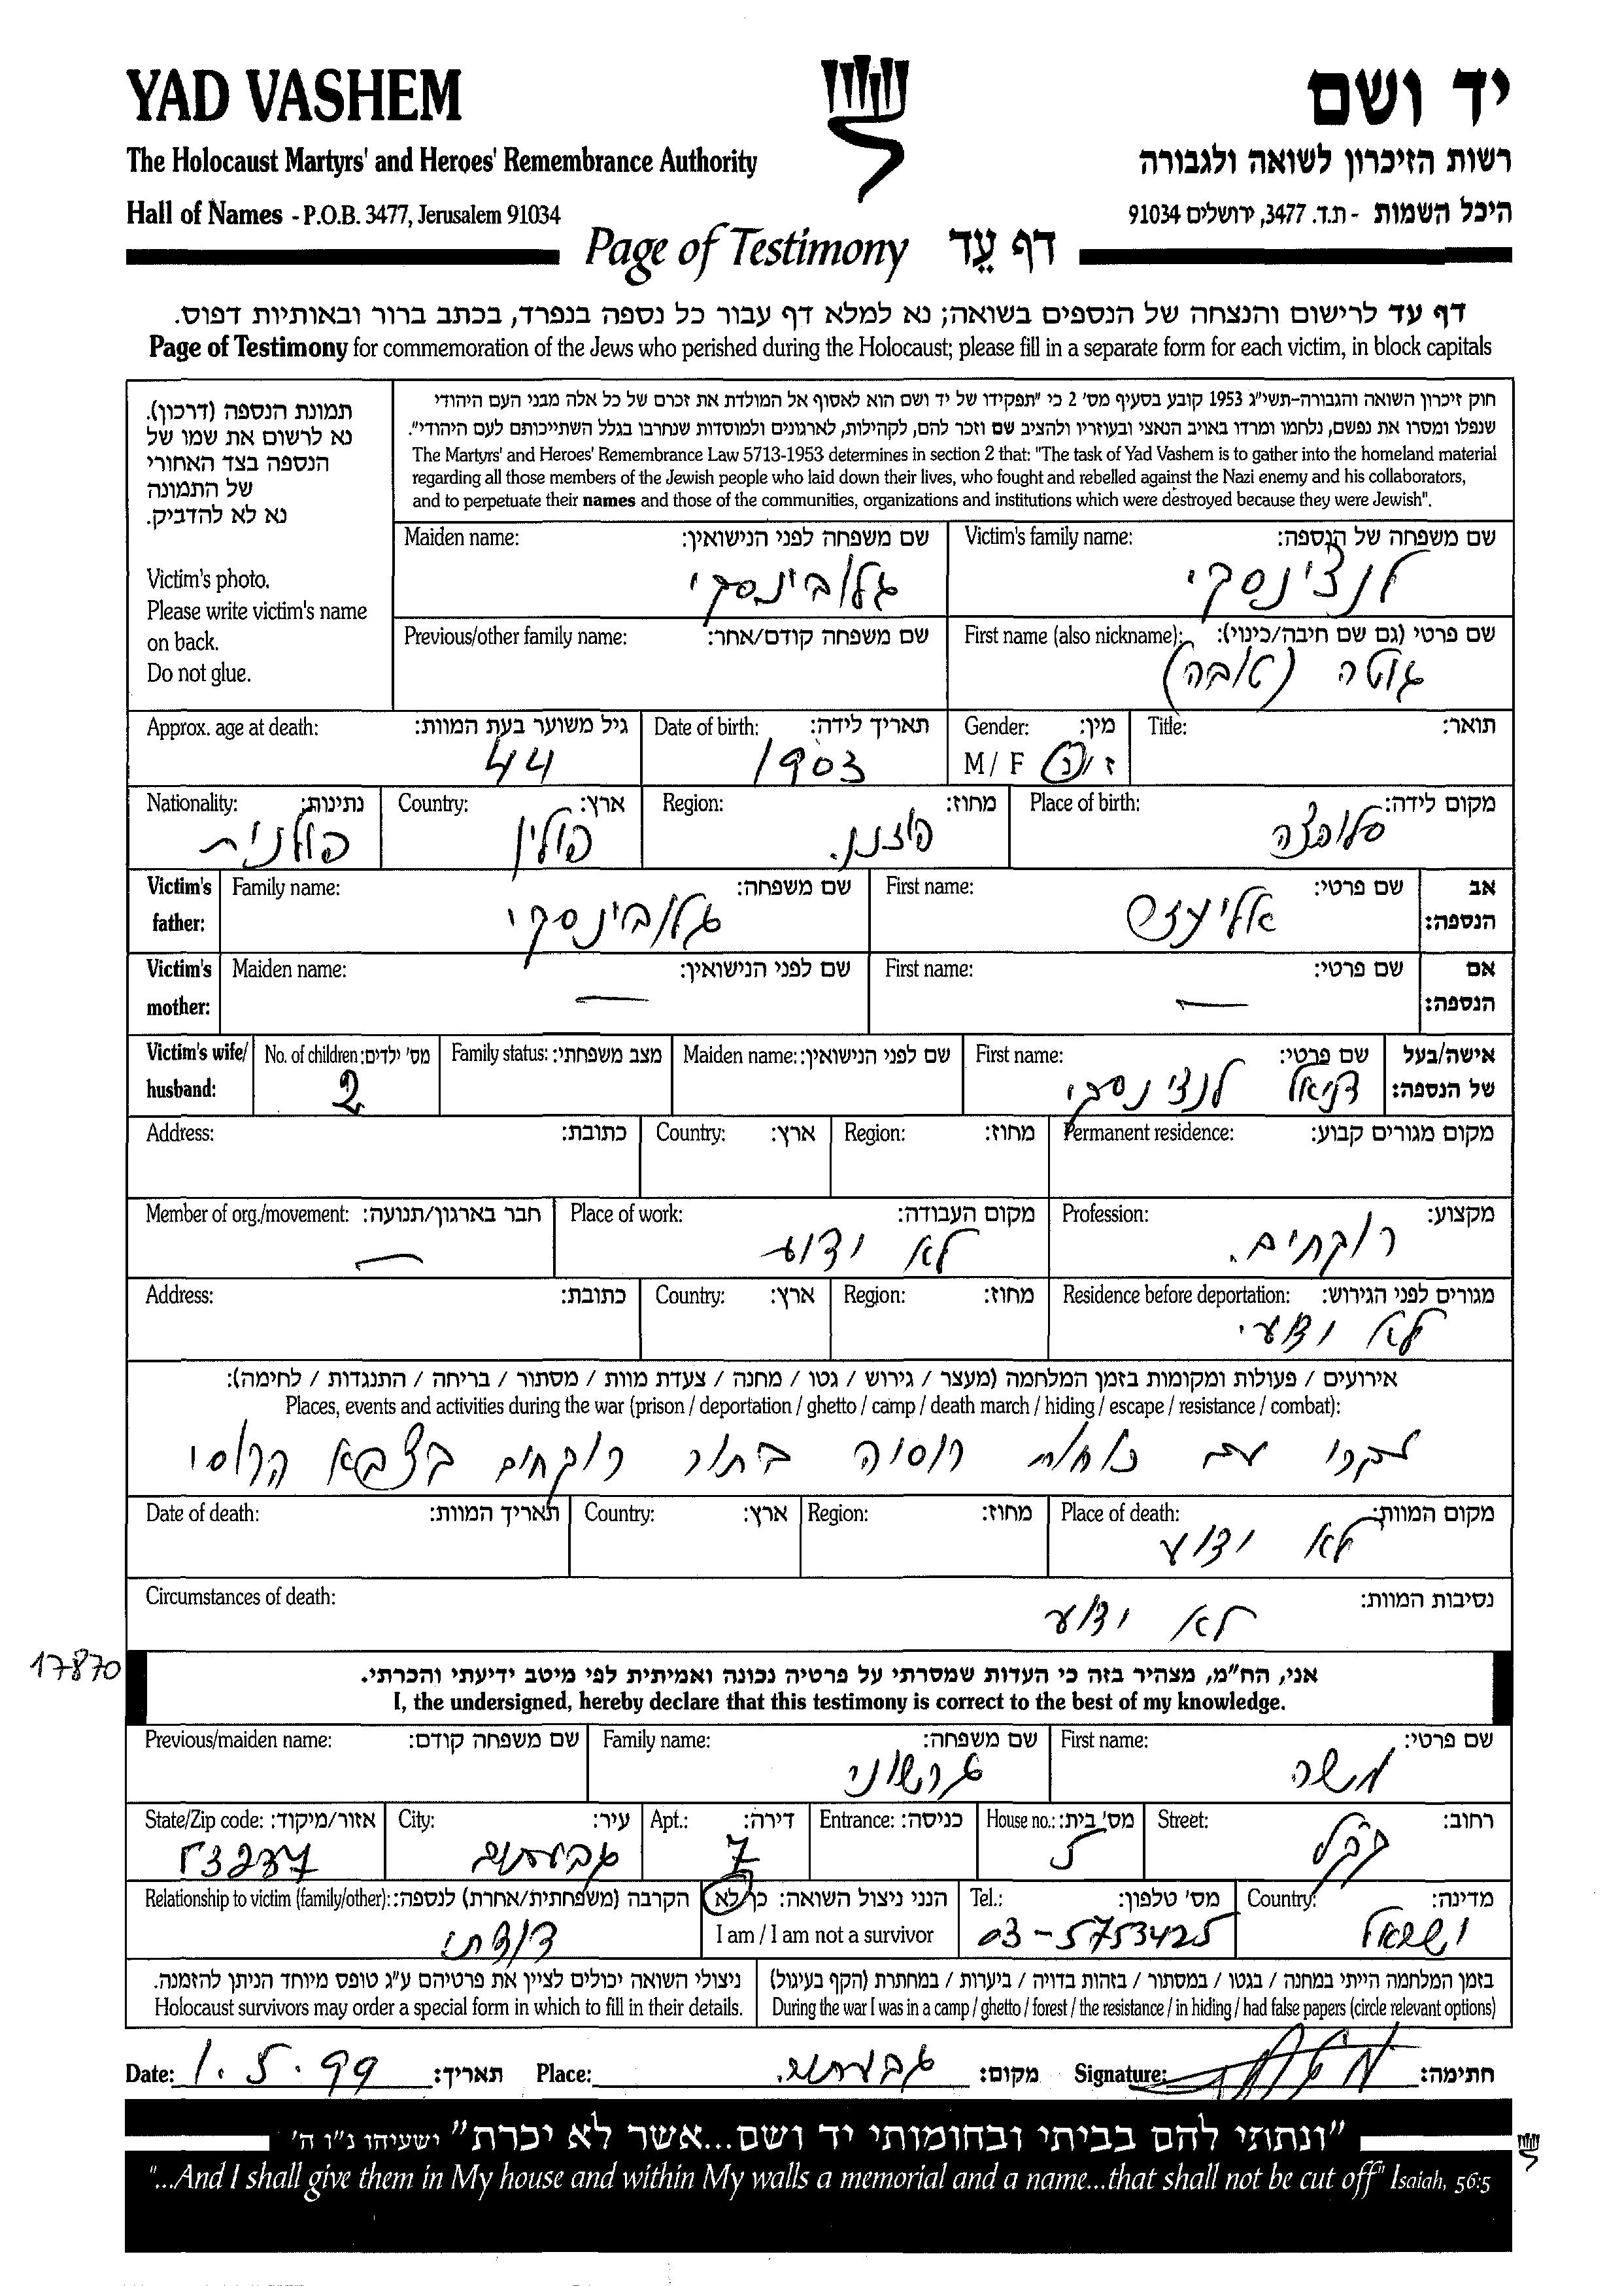 YAD VASHEM
יד ושם
The Holocaust Martyrs' and Heroes' Remembrance Authority
רשות הזיכרון לשואה ולגבורה
Hall of Names - P.O.B. 3477, Jerusalem 91034
היכל השמות - ת.ד. 3477, ירושלים 91034
Page of Testimony דף עֵד
דף עד לרישום והנצחה של הנספים בשואה; נא למלא דף עבור כל נספה בנפרד, בכתב ברור ובאותיות דפוס.
Page of Testimony for commemoration of the Jews who perished during the Holocaust; please fill in a separate form for each victim, in block capitals
תמונת הנספה (דרכון).
נא לרשום את שמו של
הנספה בצד האחורי
של התמונה
נא לא להדביק.
Victim's photo.
Please write victim's name
on back.
Do not glue.
חוק זיכרון השואה והגבורה-תשי"ג 1953 קובע בסעיף מס' 2 כי "תפקידו של יד ושם הוא לאסוף אל המולדת את זכרם של כל אלה מבני העם היהודי
שנפלו ומסרו את נפשם, נלחמו ומרדו באויב הנאצי ובעוזריו ולהציב שם וזכר להם, לקהילות, לארגונים ולמוסדות שנחרבו בגלל השתייכותם לעם היהודי".
The Martyrs' and Heroes' Remembrance Law 5713-1953 determines in section 2 that: "The task of Yad Vashem is to gather into the homeland material
regarding all those members of the Jewish people who laid down their lives, who fought and rebelled against the Nazi enemy and his collaborators,
and to perpetuate their names and those of the communities, organizations and institutions which were destroyed because they were Jewish".
Victim's family name: שם משפחה של הנספה:
לנצ'ינסקי
Maiden name: שם משפחה לפני הנישואין:
גלובינסקי
First name (also nickname): שם פרטי (גם שם חיבה/כינוי):
גוטה (טובה)
Previous/other family name: שם משפחה קודם/אחר:
Title: תואר:
Gender: מין:
M / F ז / נ
Date of birth: תאריך לידה:
1903
Approx. age at death: גיל משוער בעת המוות:
44
Place of birth: מקום לידה:
סלופצה
Region: מחוז:
פוזנן.
Country: ארץ:
פולין
Nationality: נתינות:
פולנית
Victim's father: אב הנספה:
First name: שם פרטי:
אליעזר
Family name: שם משפחה:
גלובינסקי
Victim's mother: אם הנספה:
First name: שם פרטי:
—
Maiden name: שם לפני הנישואין:
—
Victim's wife/ husband: אישה/בעל של הנספה:
First name: שם פרטי:
דניאל לנצ'ינסקי
Maiden name: שם לפני הנישואין:
Family status: מצב משפחתי:
No. of children: מס' ילדים:
2
Permanent residence: מקום מגורים קבוע:
Region: מחוז:
Country: ארץ:
Address: כתובת:
Profession: מקצוע:
רוקחים.
Place of work: מקום העבודה:
לא ידוע
Member of org./movement: חבר בארגון/תנועה:
—
Residence before deportation: מגורים לפני הגירוש:
לא ידוע.
Region: מחוז:
Country: ארץ:
Address: כתובת:
אירועים / פעולות ומקומות בזמן המלחמה (מעצר / גירוש / גטו / מחנה / צעדת מוות / מסתור / בריחה / התנגדות / לחימה):
Places, events and activities during the war (prison / deportation / ghetto / camp / death march / hiding / escape / resistance / combat):
עם כוחות רוסיה בתור רוקחים בצבא הרוסי
Place of death: מקום המוות:
לא ידוע
Region: מחוז:
Country: ארץ:
Date of death: תאריך המוות:
Circumstances of death: נסיבות המוות:
לא ידוע
17870
אני, הח"מ, מצהיר בזה כי העדות שמסרתי על פרטיה נכונה ואמיתית לפי מיטב ידיעתי והכרתי.
I, the undersigned, hereby declare that this testimony is correct to the best of my knowledge.
First name: שם פרטי:
משה
Family name: שם משפחה:
גרשוני
Previous/maiden name: שם משפחה קודם:
Street: רחוב:
House no.: מס' בית:
5
Entrance: כניסה:
Apt.: דירה:
7
City: עיר:
גבעתיים
State/Zip code: אזור/מיקוד:
53277
Country: מדינה:
ישראל
Tel.: מס' טלפון:
03-5753425
הנני ניצול השואה: כן/לא
I am / I am not a survivor
Relationship to victim (family/other): הקרבה (משפחתית/אחרת) לנספה:
דודתי
בזמן המלחמה הייתי במחנה / בגטו / במסתור / בזהות בדויה / ביערות / במחתרת (הקף בעיגול)
During the war I was in a camp / ghetto / forest / the resistance / in hiding / had false papers (circle relevant options)
ניצולי השואה יכולים לציין את פרטיהם ע"ג טופס מיוחד הניתן להזמנה.
Holocaust survivors may order a special form in which to fill in their details.
Date: 1.5.99 תאריך: Place: גבעתיים. מקום: Signature: חתימה:
"ונתתי להם בביתי ובחומותי יד ושם...אשר לא יכרת" ישעיהו נ"ו ה'
"...And I shall give them in My house and within My walls a memorial and a name...that shall not be cut off" Isaiah, 56:5